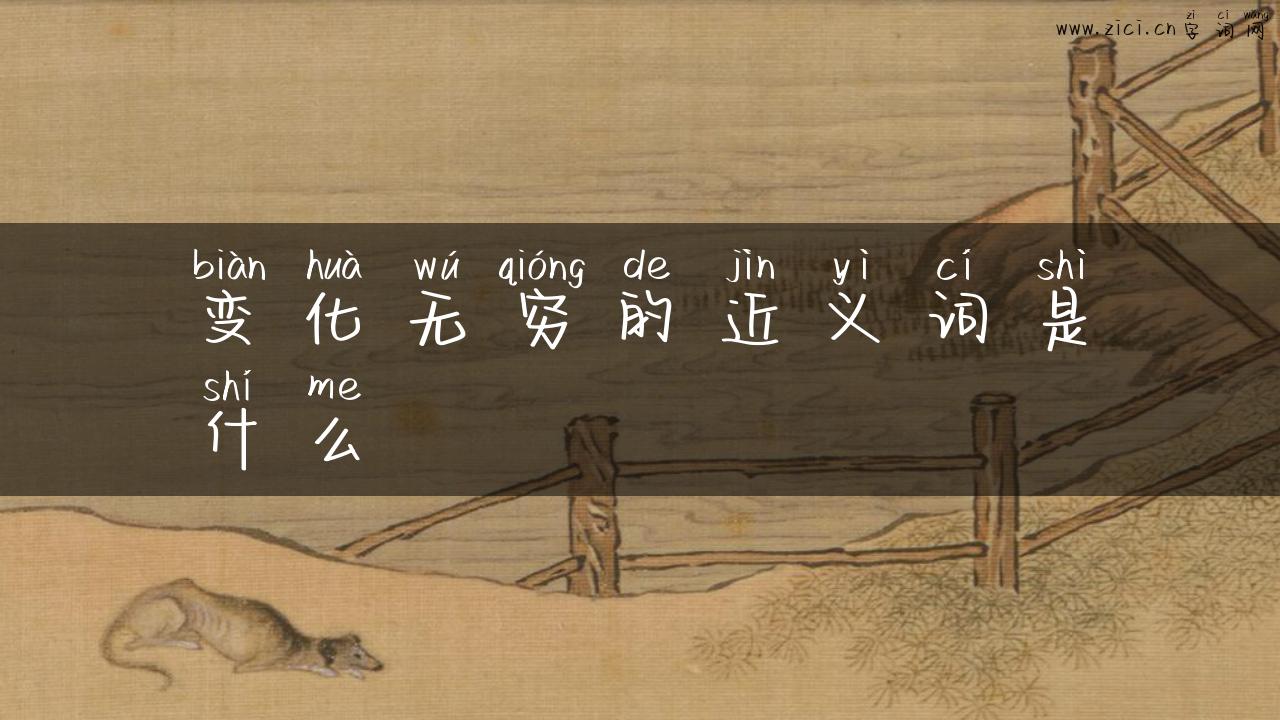 zi ci wang
www.zici.cn 字词网
biàn huà wú qióng de jìn yì cí shì
变化无穷的近义词是
shí me
什么